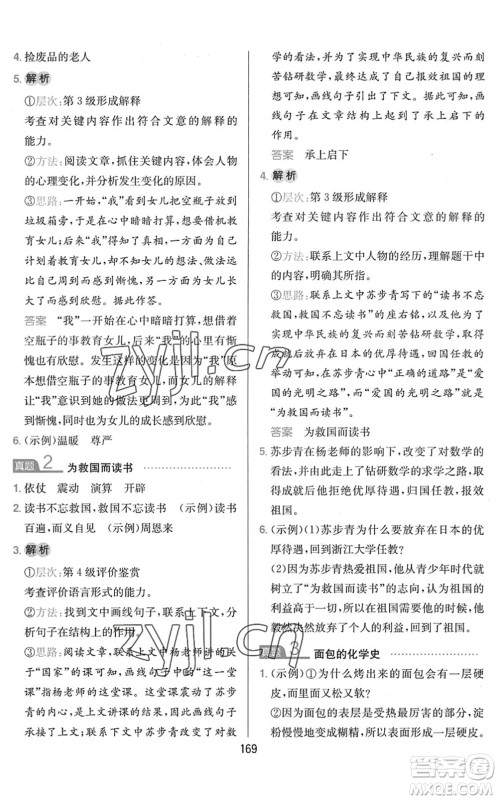 4. 捡废品的老人
5. 解析
①层次：第 3 级形成解释
考查对关键内容作出符合文意的解释的能力。
②方法：阅读文章，抓住关键，体会人物的心理变化，并分析发生变化的原因。
③思路：一开始，“我”见女儿把空瓶子扔到垃圾箱旁，于是在心中暗暗打算，想借机教育女儿；后来，女儿的解释让“我”知道了空瓶子的去处，“我”为自己计划教育女儿而感到惭愧，也为女儿长大了而感到欣慰。
答案 “我”一开始在心中暗暗打算，想借空瓶子的事教育女儿，后来心里有些惭愧也有些欣慰。变化的原因是：女儿的解释让“我”意识到她的做法是对的，“我”为自己想借空瓶子的事教育女儿而感到惭愧，同时也为女儿的成长感到欣慰。
6. （示例）温暖 尊严
真题 2 为救国而读书
1. 依仗 震动 演算 开辟
2. 读书不忘救国，救国不忘读书 （示例）读书百遍，而义自见 （示例）周恩来
3. 解析
①层次：第 4 级评价鉴赏
考查评价语言形式的能力。
②方法：找到文中画线句子，联系上下文，分析句子的作用。
③思路：联系上文中杨老师讲的关于“国家”的课可知，画线句子中“这堂课”指杨老师的这堂课。这堂课给苏步青的震动很大是上文讲课的结果，而画线句子后面的内容主要写苏步青改变了对数
学的看法，并实现了为中华民族的复兴而刻苦钻研数学，画线句子引出了下文。因此，画线句子在文章结构上起了承上启下的作用。
答案 承上启下
4. 解析
①层次：第 3 级形成解释
考查对关键内容作出符合文意的解释的能力。
②方法：联系上文中人物的经历，理解题干，明确其所指。
③思路：联系上文中苏步青写下的“读书不忘救国，救国不忘读书”的座右铭，以及他实现为中华民族的复兴而刻苦钻研数学，放弃在日本的优厚待遇，回到祖国教学的经历，体会苏步青心中“正确的道路”“爱国的光明之路”就是“救国之路”，而“爱国的光明之路”就是“为救国而读书”。
答案 为救国而读书
5. 苏步青在杨老师的影响下，改变了对数学的看法，从此走上了钻研数学的求学之路，取得了巨大成就后，放弃优厚待遇，回国报效祖国。
6. （示例）(1)苏步青为什么要放弃在日本的优厚待遇，回到浙江大学任教？
(2)因为苏步青热爱祖国，他从青少年时代就树立了“为救国而读书”的志向，认为祖国的利益高于个人的利益，所以当祖国需要他时，他毅然放弃了个人的利益，回到了祖国。
真题 3 面包的化学史
1. （示例）①为什么烤出来的面包会有一层硬皮，而里面又松又软？
②因为面包的表层是受热最厉害的地方，淀粉慢慢地变成糊精，所以形成一层硬皮。
169
zyjl.cn
zyjl.cn
答案圈
MXQE.COM